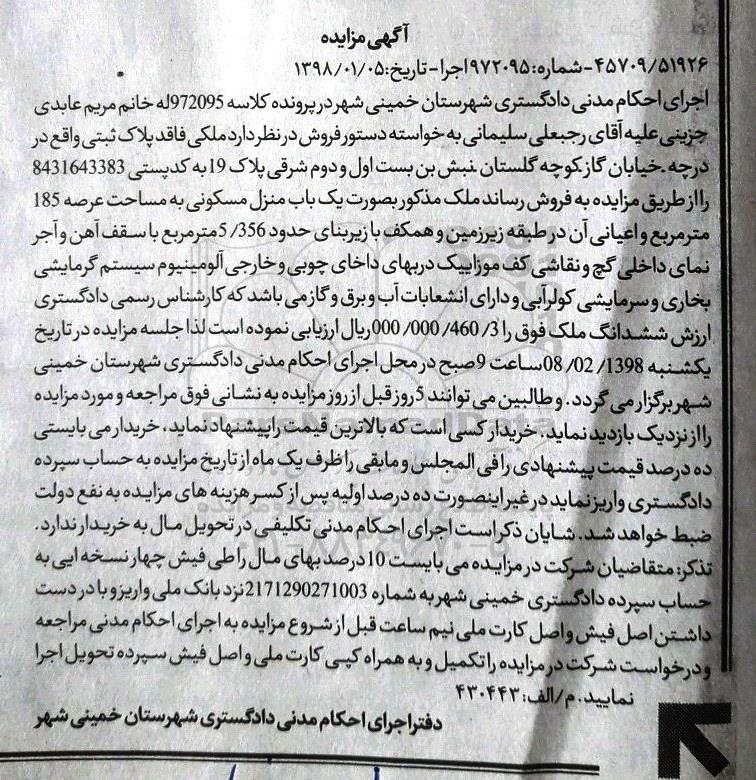 آگهی مزایده
۴۵۷۰۹/۵۱۹۲۶-شماره:۹۷۲۰۹۵اجرا-تاریخ:۱۳۹۸/۰۱/۰۵
اجرای احکام مدنی دادگستری شهرستان خمینی شهر در پرونده کلاسه 972095له خانم مریم عابدی
جزینی علیه آقای رجبعلی سلیمانی به خواسته دستور فروش در نظر دارد ملکی فاقد پلاک ثبتی واقع در
درچه .خیابان گاز.کوچه گلستان .نبش بن بست اول و دوم شرقی پلاک 19به کدپستی 8431643383
را از طریق مزایده به فروش رساند ملک مذکور بصورت یک باب منزل مسکونی به مساحت عرصه 185
مترمربع و اعیانی آن در طبقه زیرزمین و همکف با زیربنای حدود 356/ 5مترمربع با سقف آهن و آجر
نمای داخلی گچ و نقاشی کف موزاییک دربهای داخای چوبی و خارجی آلومینیوم سیستم گرمایشی
بخاری و سرمایشی کولرآبی و دارای انشعابات آب و برق و گاز می باشد که کارشناس رسمی دادگستری
ارزش ششدانگ ملک فوق را 3/ 460/ 000/ 000ریال ارزیابی نموده است لذا جلسه مزایده در تاریخ
یکشنبه 1398/ 02/ 08ساعت 9صبح در محل اجرای احکام مدنی دادگستری شهرستان خمینی
شهر برگزار می گردد. و طالبین می توانند 5روز قبل از روز مزایده به نشانی فوق مراجعه و مورد مزایده
را از نزدیک بازدید نماید. خریدار کسی است که بالاترین قیمت را پیشنهاد نماید، خریدار می بایستی
ده درصد قیمت پیشنهادی را فی المجلس و مابقی را ظرف یک ماه از تاریخ مزایده به حساب سپرده
دادگستری واریز نماید در غیر اینصورت ده درصد اولیه پس از کسر هزینه های مزایده به نفع دولت
ضبط خواهد شد. شایان ذکر است اجرای احکام مدنی تکلیفی در تحویل مال به خریدار ندارد.
تذکر: متقاضیان شرکت در مزایده می بایست 10درصد بهای مال را طی فیش چهار نسخه ایی به
حساب سپرده دادگستری خمینی شهر به شماره 2171290271003نزد بانک ملی واریز و با در دست
داشتن اصل فیش و اصل کارت ملی نیم ساعت قبل از شروع مزایده به اجرای احکام مدنی مراجعه
و درخواست شرکت در مزایده را تکمیل و به همراه کپی کارت ملی و اصل فیش سپرده تحویل اجرا
نمایید. م/الف: ۴۳۰۴۴۳
دفتر اجرای احکام مدنی دادگستری شهرستان خمینی شهر